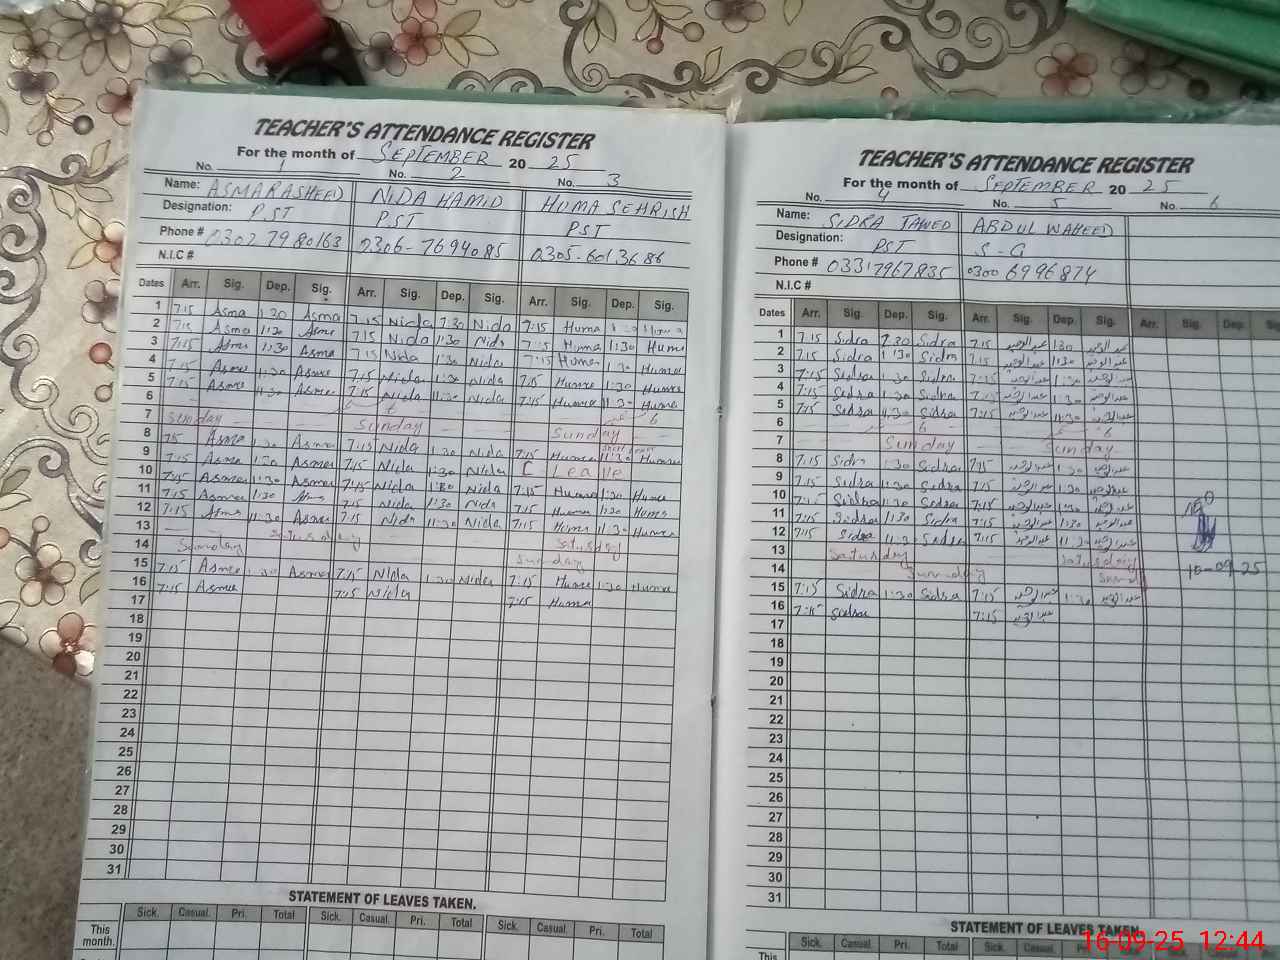 TEACHER'S ATTENDANCE REGISTER
For the month of SEPTEMBER 20 25
No. 1 No. 2 No. 3
Name: ASMA RASHEED NIDA HAMID HUMA SEHRISH
Designation: PST PST PST
Phone # 0302 7980163 0306-7694085 0305-6013686
N.I.C #
Dates Arr. Sig. Dep. Sig. Arr. Sig. Dep. Sig. Arr. Sig. Dep. Sig.
1 7:15 Asma 1:30 Asma 7:15 Nida 1:30 Nida 7:15 Huma 1:30 Huma
2 7:15 Asma 1:30 Asma 7:15 Nida 1:30 Nida 7:15 Huma 1:30 Huma
3 7:15 Asma 1:30 Asma 7:15 Nida 1:30 Nida 7:15 Huma 1:30 Huma
4 7:15 Asma 1:30 Asma 7:15 Nida 1:30 Nida 7:15 Huma 1:30 Huma
5 7:15 Asma 11:30 Asma 7:15 Nida 11:30 Nida 7:15 Huma 11:30 Huma
6
7 Sunday Sunday Sunday
8 7:15 Asma 1:30 Asma 7:15 Nida 1:30 Nida 7:15 Huma 11:30 Huma
9 7:15 Asma 1:30 Asma 7:15 Nida 1:30 Nida C-Leave
10 7:15 Asma 1:30 Asma 7:15 Nida 1:30 Nida 7:15 Huma 1:30 Huma
11 7:15 Asma 1:30 Asma 7:15 Nida 1:30 Nida 7:15 Huma 1:30 Huma
12 7:15 Asma 11:30 Asma 7:15 Nida 11:30 Nida 7:15 Huma 11:30 Huma
13 Saturday Saturday
14 Sunday Sunday
15 7:15 Asma 1:30 Asma 7:15 Nida 1:30 Nida 7:15 Huma 1:30 Huma
16 7:15 Asma 7:15 Nida 7:15 Huma
17
18
19
20
21
22
23
24
25
26
27
28
29
30
31
STATEMENT OF LEAVES TAKEN.
Sick. Casual. Pri. Total Sick. Casual. Pri. Total Sick. Casual. Pri. Total
This month.
TEACHER'S ATTENDANCE REGISTER
For the month of SEPTEMBER 20 25
No. 4 No. 5 No. 6
Name: SIDRA JAWED ABDUL WAHEED
Designation: PST S-G
Phone # 0331 7967835 0300 6996874
N.I.C #
Dates Arr. Sig. Dep. Sig. Arr. Sig. Dep. Sig. Arr. Sig. Dep. S
1 7:15 Sidra 1:30 Sidra 7:15 عبدالوحید 1:30 عبدالوحید
2 7:15 Sidra 1:30 Sidra 7:15 عبدالوحید 1:30 عبدالوحید
3 7:15 Sidra 1:30 Sidra 7:15 عبدالوحید 1:30 عبدالوحید
4 7:15 Sidra 1:30 Sidra 7:15 عبدالوحید 1:30 عبدالوحید
5 7:15 Sidra 11:30 Sidra 7:15 عبدالوحید 11:30 عبدالوحید
6
7 Sunday Sunday
8 7:15 Sidra 1:30 Sidra 7:15 عبدالوحید 1:30 عبدالوحید
9 7:15 Sidra 1:30 Sidra 7:15 عبدالوحید 1:30 عبدالوحید
10 7:15 Sidra 1:30 Sidra 7:15 عبدالوحید 1:30 عبدالوحید
11 7:15 Sidra 1:30 Sidra 7:15 عبدالوحید 1:30 عبدالوحید
12 7:15 Sidra 11:30 Sidra 7:15 عبدالوحید 11:30 عبدالوحید
13 Saturday Saturday
14 Sunday Sund
10-09-25
15 7:15 Sidra 1:30 Sidra 7:15 عبدالوحید 1:30 عبدالوحید
16 7:15 Sidra 7:15 عبدالوحید
17
18
19
20
21
22
23
24
25
26
27
28
29
30
31
STATEMENT OF LEAVES TAKEN.
Sick. Casual Pri. Total Sick. Casual
This
16-09-25 12:44